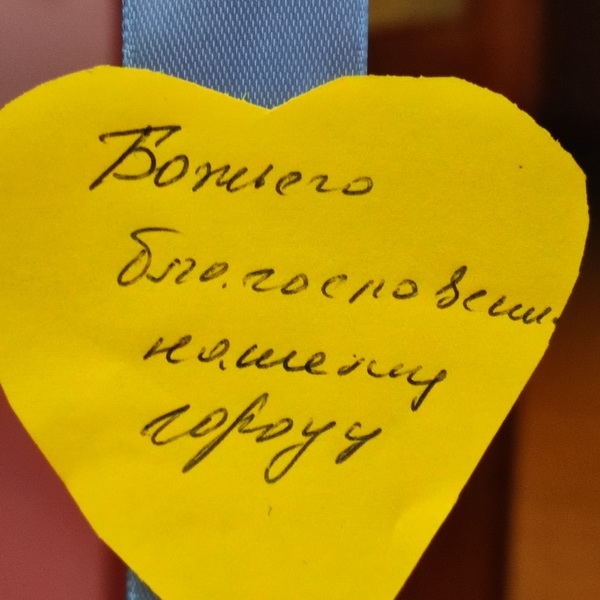 Божьего
благословени
нашему
городу